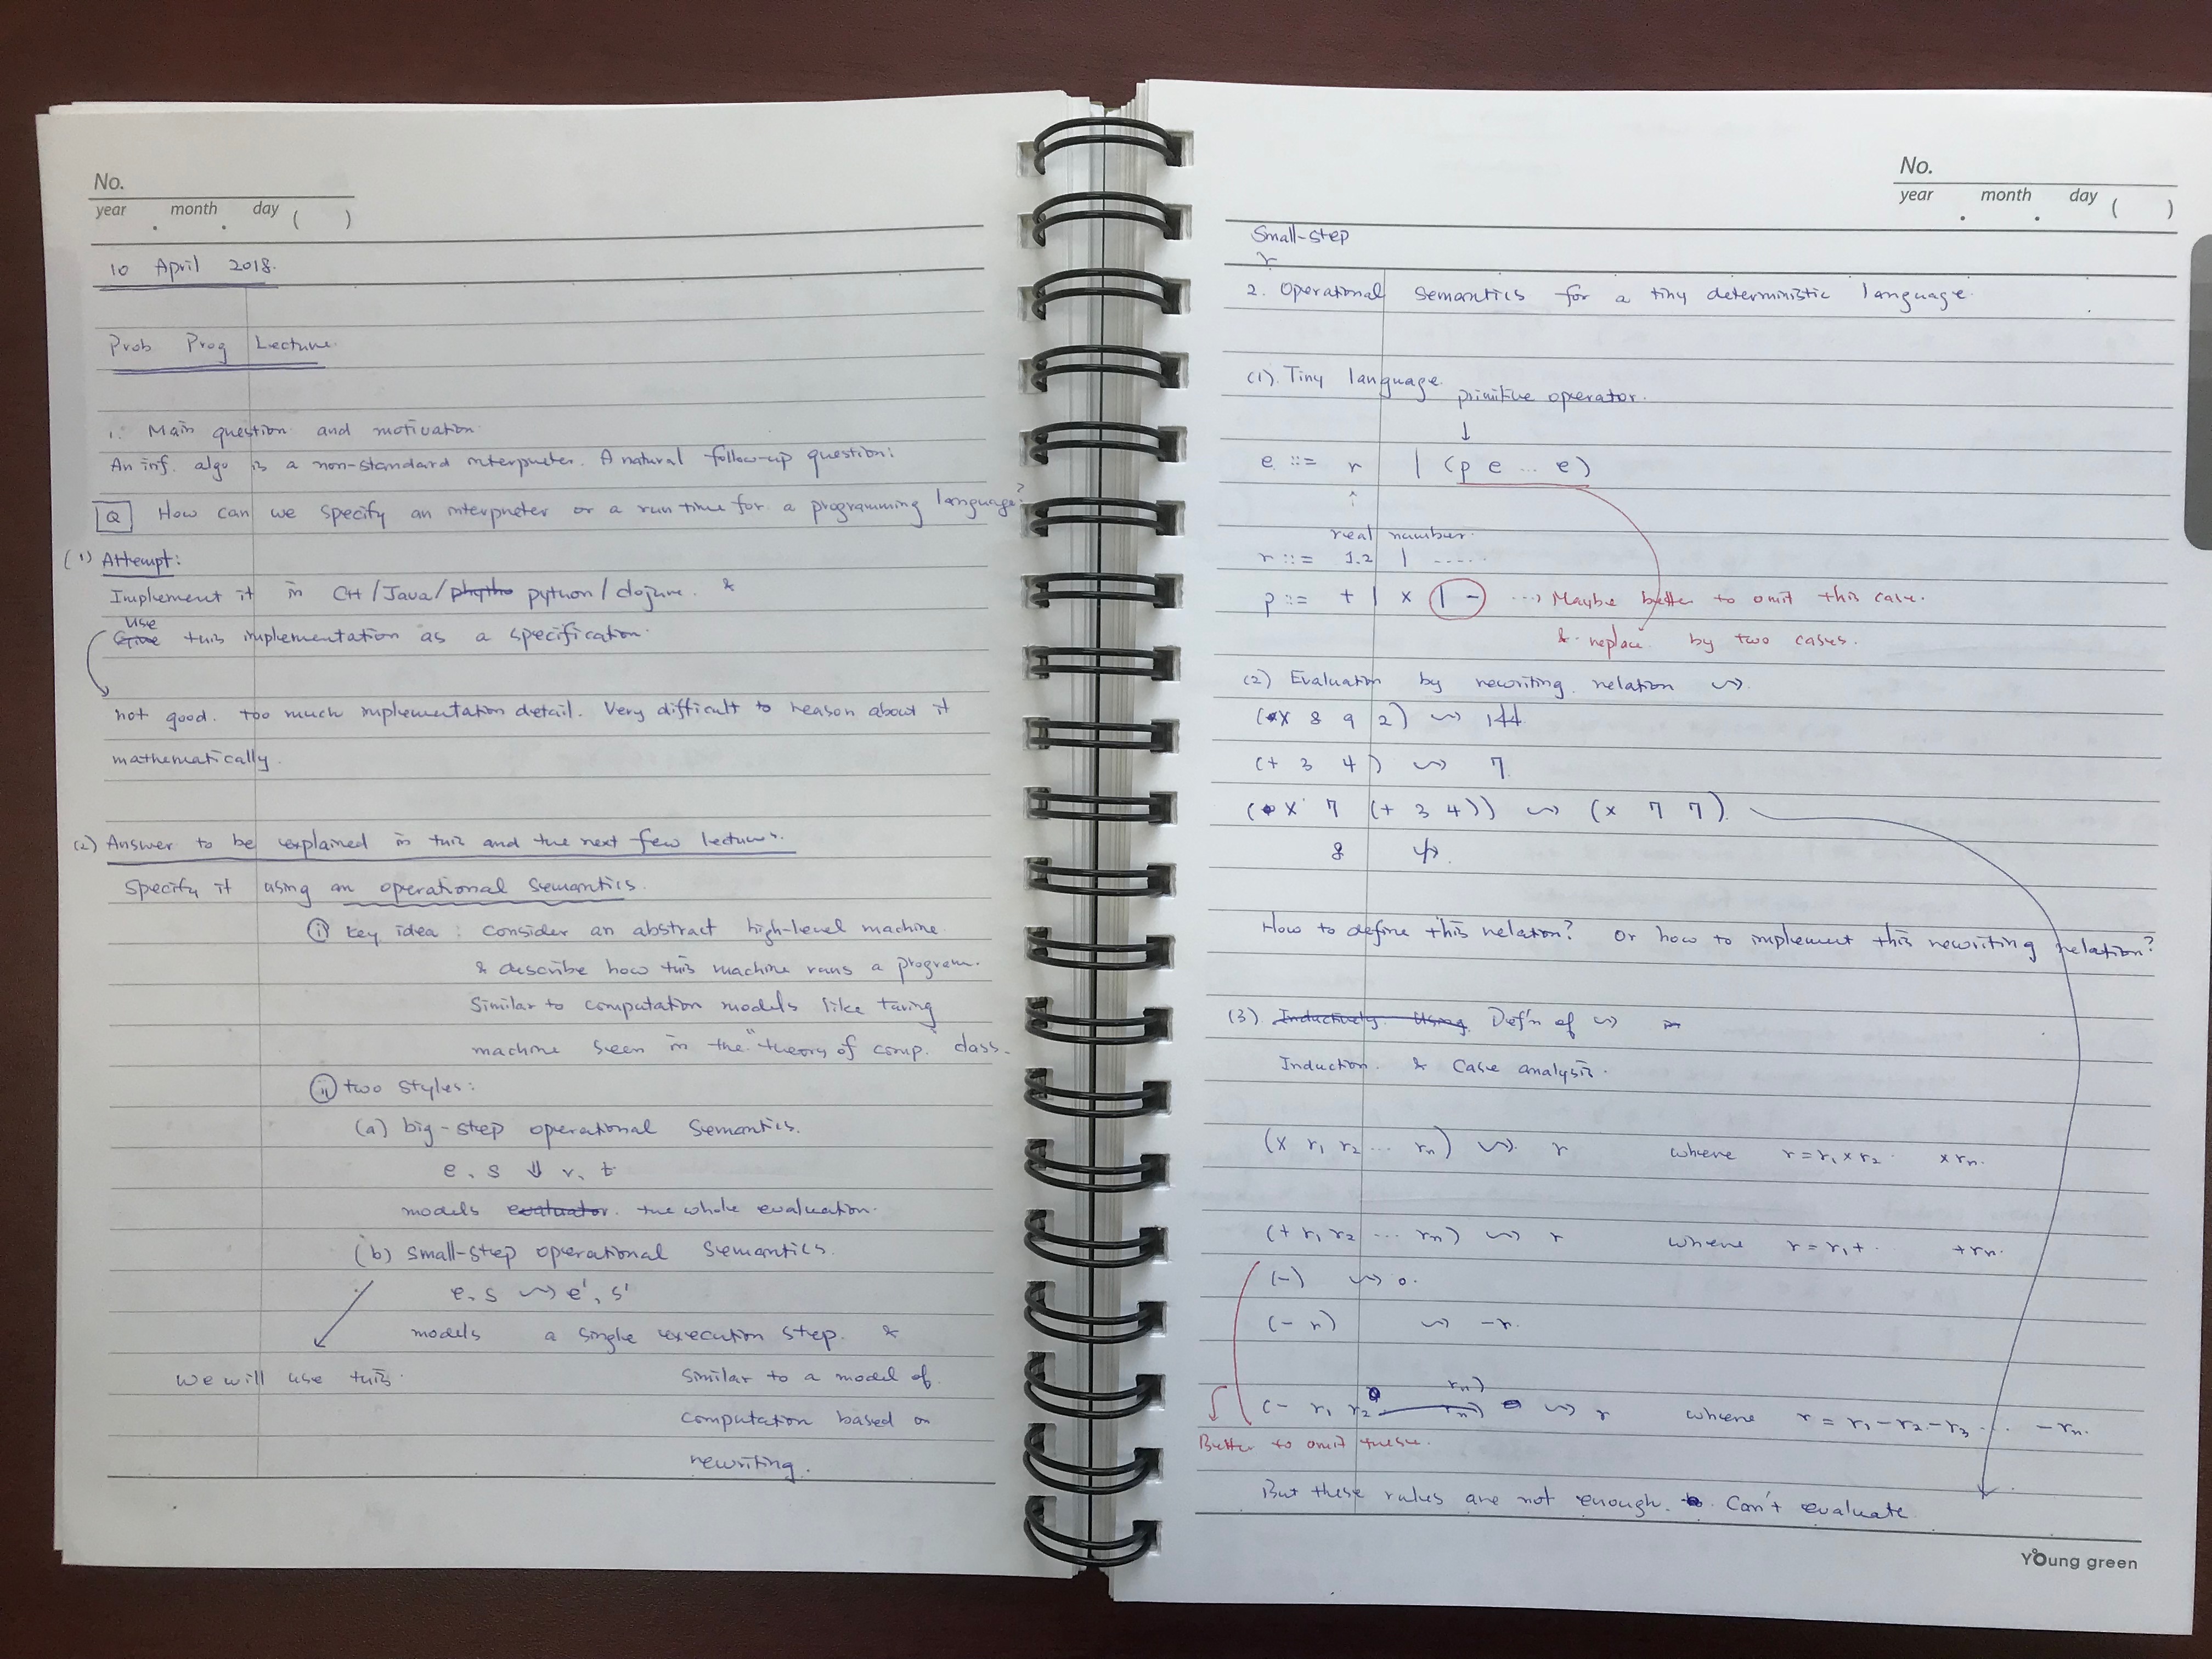 No.
year . month . day ( )
10 April 2018.
Prob Prog Lecture.
1. Main question and motivation.
An inf. algo is a non-standard interpreter. A natural follow-up question:
Q How can we specify an interpreter or a run time for a programming language?
(1) Attempt:
Implement it in C++/Java/phytho python/clojure. &
Use
Give this implementation as a specification.
not good. too much implementation detail. Very difficult to reason about it
mathematically.
(2) Answer to be explained in this and the next few lectures.
Specify it using an operational semantics.
(i) key idea : consider an abstract high-level machine.
& describe how this machine runs a program.
Similar to computation models like Turing
machine seen in the "theory of comp." class.
(ii) two styles:
(a) big-step operational semantics.
e, s ⇓ r, t
models evaluator. the whole evaluation.
(b) small-step operational semantics.
e, s ⤳ e', s'
models a single execution step. &
We will use this. Similar to a model of
computation based on
rewriting.
No.
year . month . day ( )
Small-step
2. Operational semantics for a tiny deterministic language.
(1). Tiny language.
primitive operator.
↓
e ::= r | (p e ... e)
↑
real number.
r ::= 1.2 | .....
p ::= + | × | - ...→ Maybe better to omit this case.
& replace by two cases.
(2) Evaluation by rewriting relation ⤳.
(× 8 9 2) ⤳ 144
(+ 3 4) ⤳ 7
(× 7 (+ 3 4)) ⤳ (× 7 7)
How to define this relation? Or how to implement this rewriting relation?
(3). Inductively Using Def'n of ⤳
Induction. & Case analysis.
(× r₁ r₂ ... rₙ) ⤳ r where r = r₁ × r₂ × rₙ.
(+ r₁ r₂ ... rₙ) ⤳ r where r = r₁ + . + rₙ.
(-) ⤳ 0.
(- r) ⤳ -r.
rₙ)
(- r₁ r₂ rₙ) ⤳ r where r = r₁ - r₂ - r₃ ... - rₙ.
Better to omit these.
But these rules are not enough. Can't evaluate
Young green